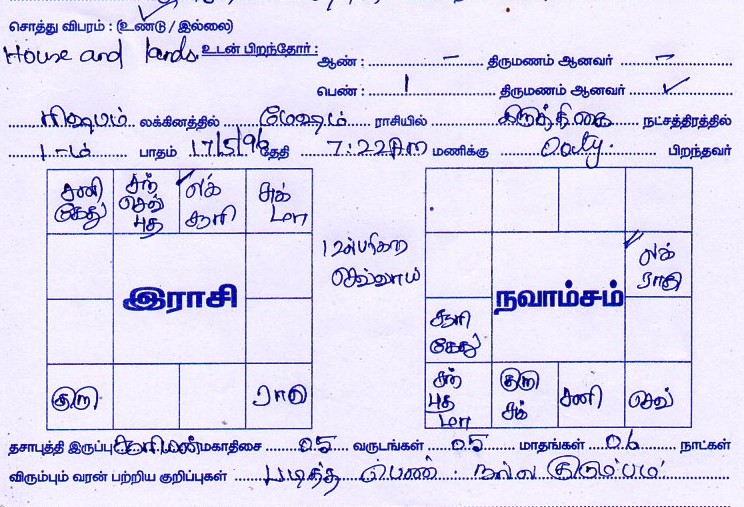 சொத்து விபரம் : (உண்டு / இல்லை)
House and lands உடன் பிறந்தோர் : ஆண் : – திருமணம் ஆனவர் –
பெண் : 1 திருமணம் ஆனவர் ✓
ரிஷபம் லக்கினத்தில் மேஷம் ராசியில் கிருத்திகை நட்சத்திரத்தில்
1-ம் பாதம் 17/5/96 தேதி 7:22 AM மணிக்கு Ooty. பிறந்தவர்
சனி கேது
சந் செவ் புத
லக் சூரி
சுக் மா
இராசி
குரு
ராகு
12ல்
செவ்வாய்
லக் ராகு
நவாம்சம்
சூரி கேது
சந் புத மா
குரு சுக்
சனி
செவ்
தசாபுத்தி இருப்பு சூரியன் மகாதிசை 05 வருடங்கள் 05 மாதங்கள் 06 நாட்கள்
விரும்பும் வரன் பற்றிய குறிப்புகள் படித்த பெண். நல்ல குடும்பம்